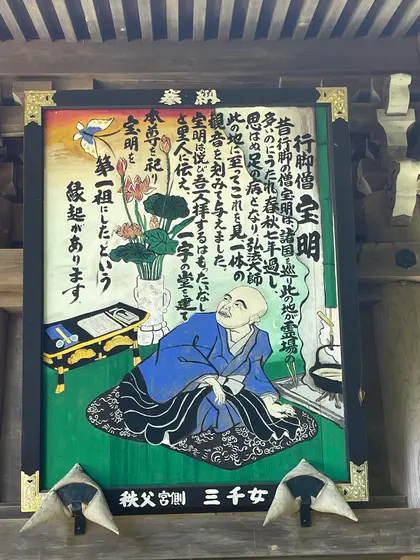 奉納
行脚僧 宝明
昔行脚の僧宝明は諸国を巡り此の地が霊場の
多いのにうたれ春秋七年過し、
思はぬ足の病となり弘法大師
此の地に至ってこれを見一体の
観音を刻みて与えました。
宝明は悦び吾一人拝するはもったいなし
と里人に伝え、一宇の堂を建て
本尊を祀り
宝明を
第一祖にしたという
縁起があります
秩父宮側 三千女